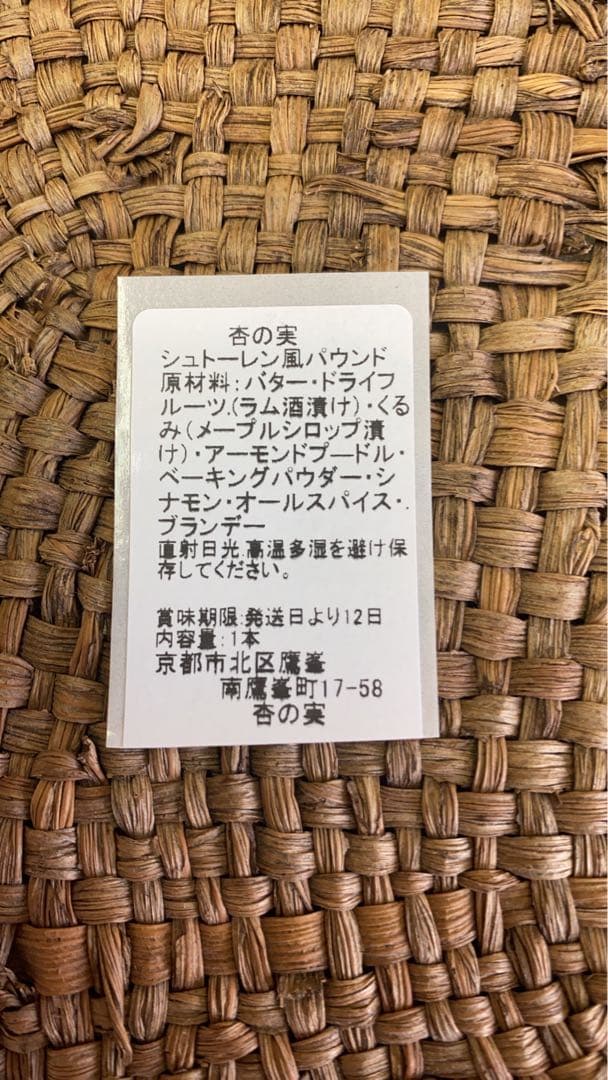 杏の実
シュトーレン風パウンド
原材料:バター・ドライフ
ルーツ.(ラム酒漬け)・くる
み(メープルシロップ漬
け)・アーモンドプードル・
ベーキングパウダー・シ
ナモン・オールスパイス・.
ブランデー
直射日光.高温多湿を避け保
存してください。
賞味期限:発送日より12日
内容量:1本
京都市北区鷹峯
南鷹峯町17-58
杏の実